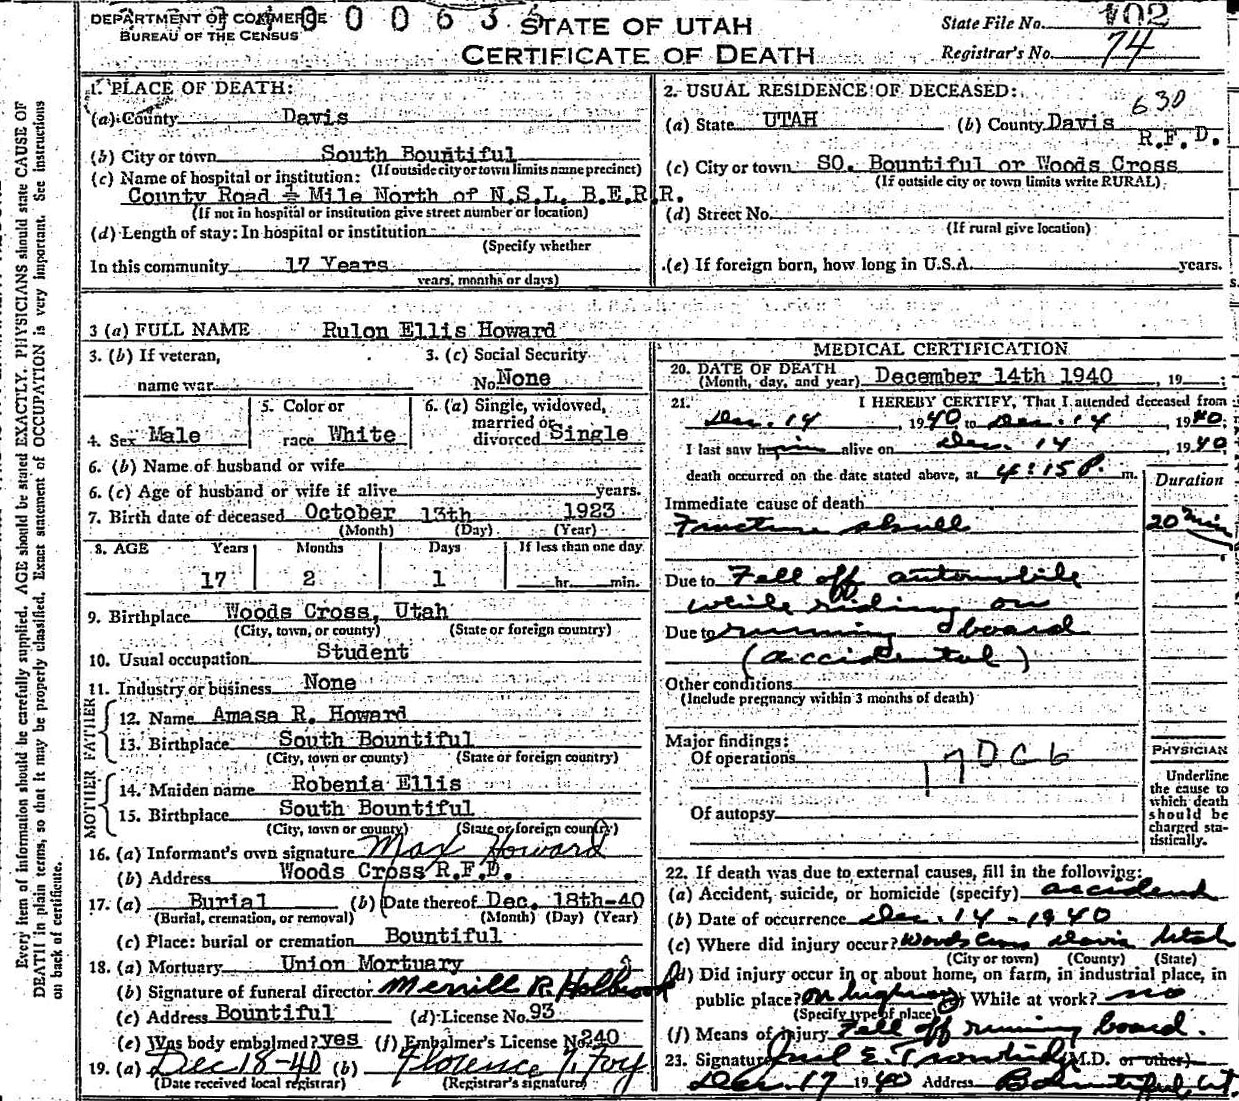 DEPARTMENT OF COMMERCE
BUREAU OF THE CENSUS
0 0 0 6 3
STATE OF UTAH
CERTIFICATE OF DEATH
State File No. 102
Registrar's No. 74
Every item of information should be carefully supplied. AGE should be stated EXACTLY. PHYSICIANS should state CAUSE OF
DEATH in plain terms, so that it may be properly classified. Exact statement of OCCUPATION is very important. See instructions
on back of certificate.
1. PLACE OF DEATH:
(a) County Davis
(b) City or town South Bountiful
(If outside city or town limits name precinct)
(c) Name of hospital or institution:
County Road ½ Mile North of N.S.L. B.E.R.R.
(If not in hospital or institution give street number or location)
(d) Length of stay: In hospital or institution
(Specify whether
In this community 17 Years
years, months or days)
2. USUAL RESIDENCE OF DECEASED:
630
(a) State UTAH (b) County Davis
R.F.D.
(c) City or town SO. Bountiful or Woods Cross
(If outside city or town limits write RURAL)
(d) Street No.
(If rural give location)
(e) If foreign born, how long in U.S.A. years.
3 (a) FULL NAME Rulon Ellis Howard
3. (b) If veteran,
name war
3. (c) Social Security
No. None
4. Sex Male
5. Color or
race White
6. (a) Single, widowed,
married or
divorced Single
6. (b) Name of husband or wife
6. (c) Age of husband or wife if alive years.
7. Birth date of deceased October 13th 1923
(Month) (Day) (Year)
8. AGE Years Months Days If less than one day
17 2 1 hr. min.
9. Birthplace Woods Cross, Utah
(City, town, or county) (State or foreign country)
10. Usual occupation Student
11. Industry or business None
FATHER
12. Name Amasa R. Howard
13. Birthplace South Bountiful
(City, town or county) (State or foreign country)
MOTHER
14. Maiden name Robenia Ellis
15. Birthplace South Bountiful
(City, town or county) (State or foreign country)
16. (a) Informant's own signature Max Howard
(b) Address Woods Cross R.F.D.
17. (a) Burial (b) Date thereof Dec. 18th-40
(Burial, cremation, or removal) (Month) (Day) (Year)
(c) Place: burial or cremation Bountiful
18. (a) Mortuary Union Mortuary
(b) Signature of funeral director Merrill R. Holbrook
(c) Address Bountiful (d) License No. 93
(e) Was body embalmed? yes (f) Embalmer's License No. 240
19. (a) Dec 18-40 (b) Florence
(Date received local registrar) (Registrar's signature)
MEDICAL CERTIFICATION
20. DATE OF DEATH
(Month, day, and year) December 14th 1940, 19 ;
21. I HEREBY CERTIFY, That I attended deceased from
Dec. 14, 1940 to Dec. 14, 1940;
I last saw him alive on Dec. 14, 1940
death occurred on the date stated above, at 4:15 P. m.
Duration
Immediate cause of death
Fracture skull 20 min
Due to Fell off automobile
while riding on
Due to running board
(accidental)
Other conditions
(Include pregnancy within 3 months of death)
Major findings:
Of operations
Of autopsy
PHYSICIAN
Underline
the cause to
which death
should be
charged sta-
tistically.
22. If death was due to external causes, fill in the following:
(a) Accident, suicide, or homicide (specify) accident
(b) Date of occurrence Dec. 14 - 1940
(c) Where did injury occur? Woods Cross Davis Utah
(City or town) (County) (State)
(d) Did injury occur in or about home, on farm, in industrial place, in
public place? on highway While at work? no
(Specify type of place)
(f) Means of injury Fell off running board.
23. Signature (M.D. or other)
Dec. 17 1940 Address Bountiful, Ut.